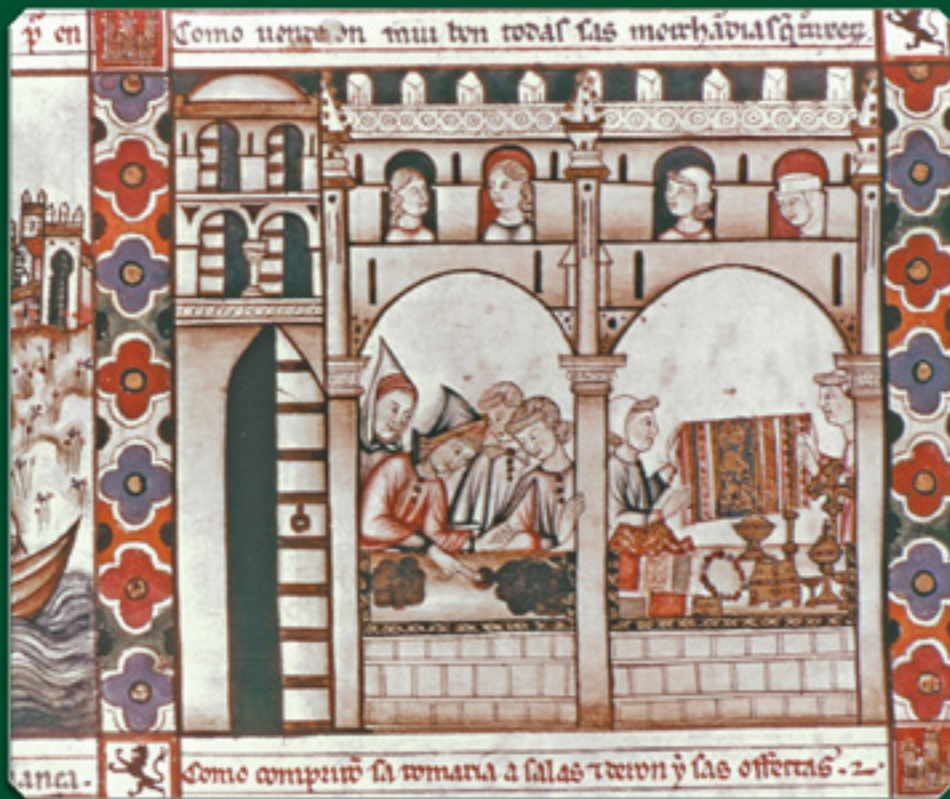 p̃ en
Como uenderon mui ben todas sas merchãdias q̃
ianca.
Como comprirõ sa romaria a salas τ deron y sas offertas.